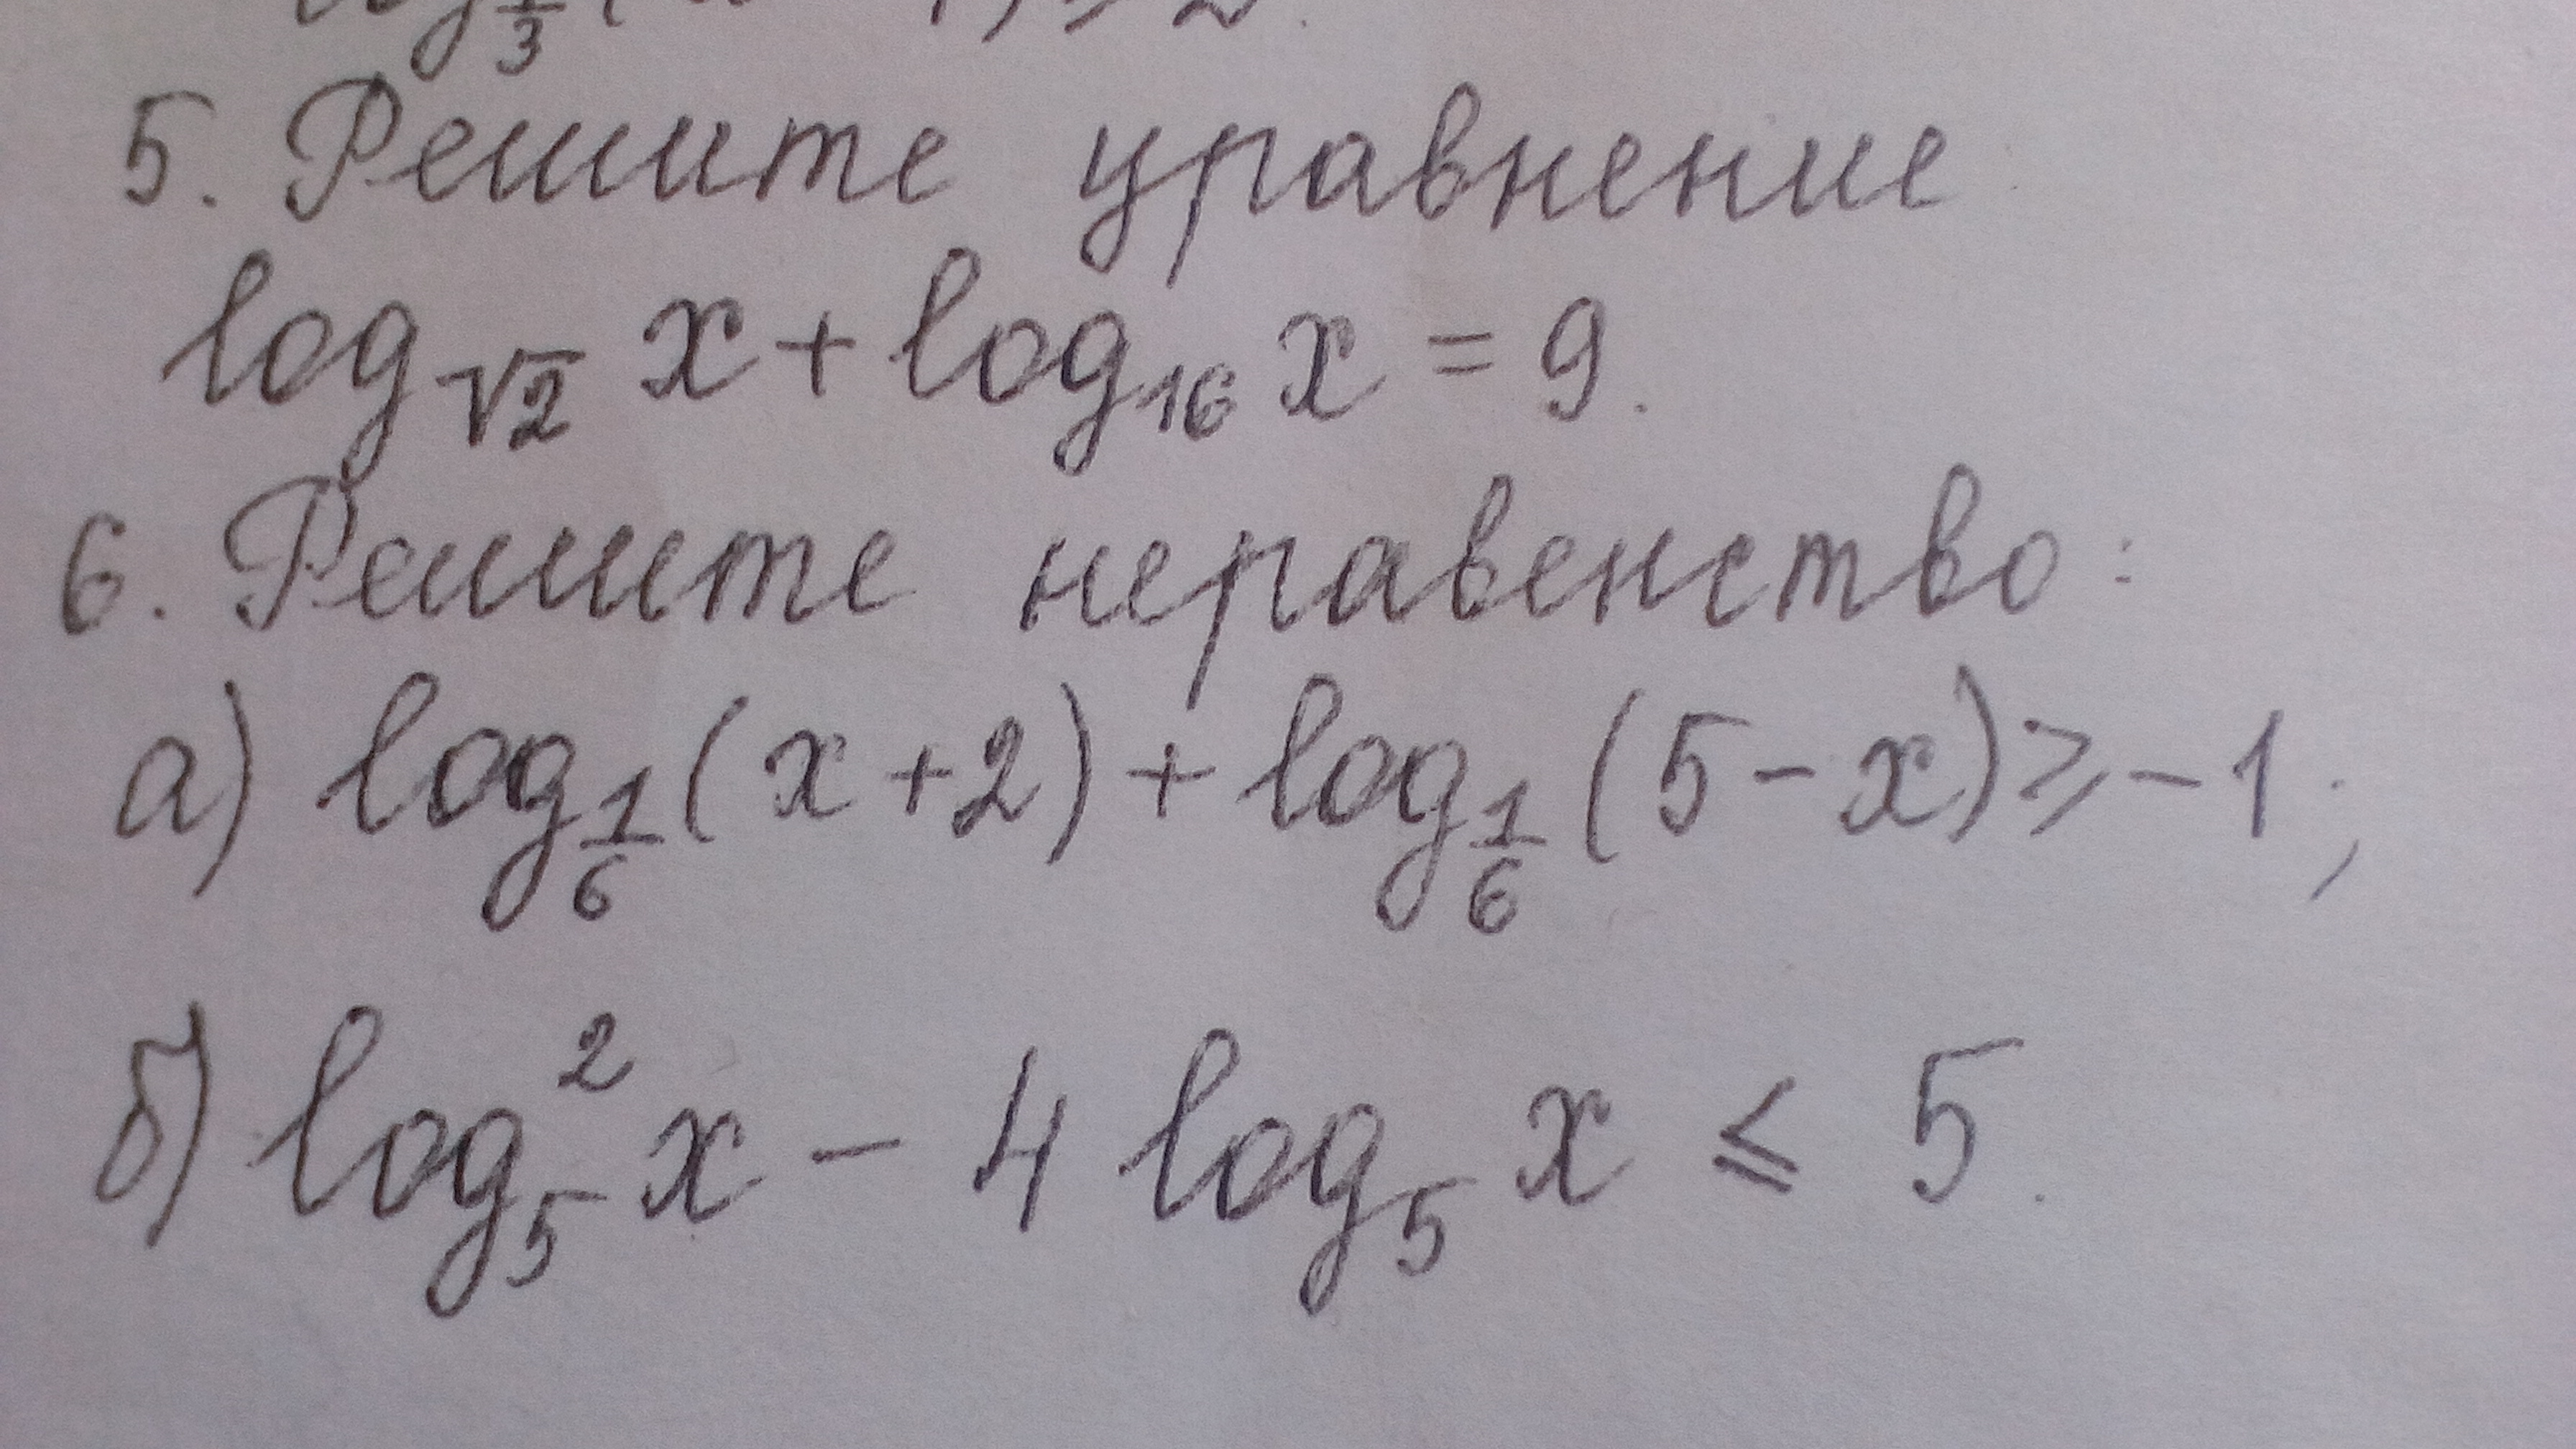 5. Решите уравнение
log_{√2} x + log_{16} x = 9.
6. Решите неравенство:
а) log_{1/6} (x+2) + log_{1/6} (5-x) ≥ -1;
б) log_5^2 x - 4 log_5 x ≤ 5.